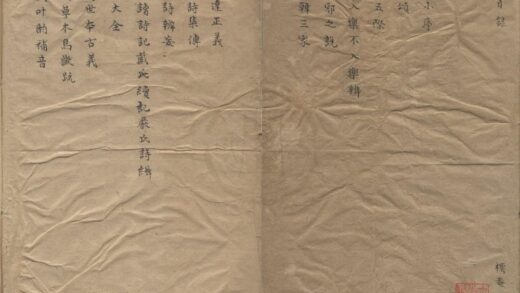 錄
小序
頌
五際
入樂不入樂辨
邪之說
韓三家
達正義
詩集傳
詩辨妄
讀詩記戴氏續記嚴氏詩緝
大全
世本古義
草木鳥獸疏
叶韵補音